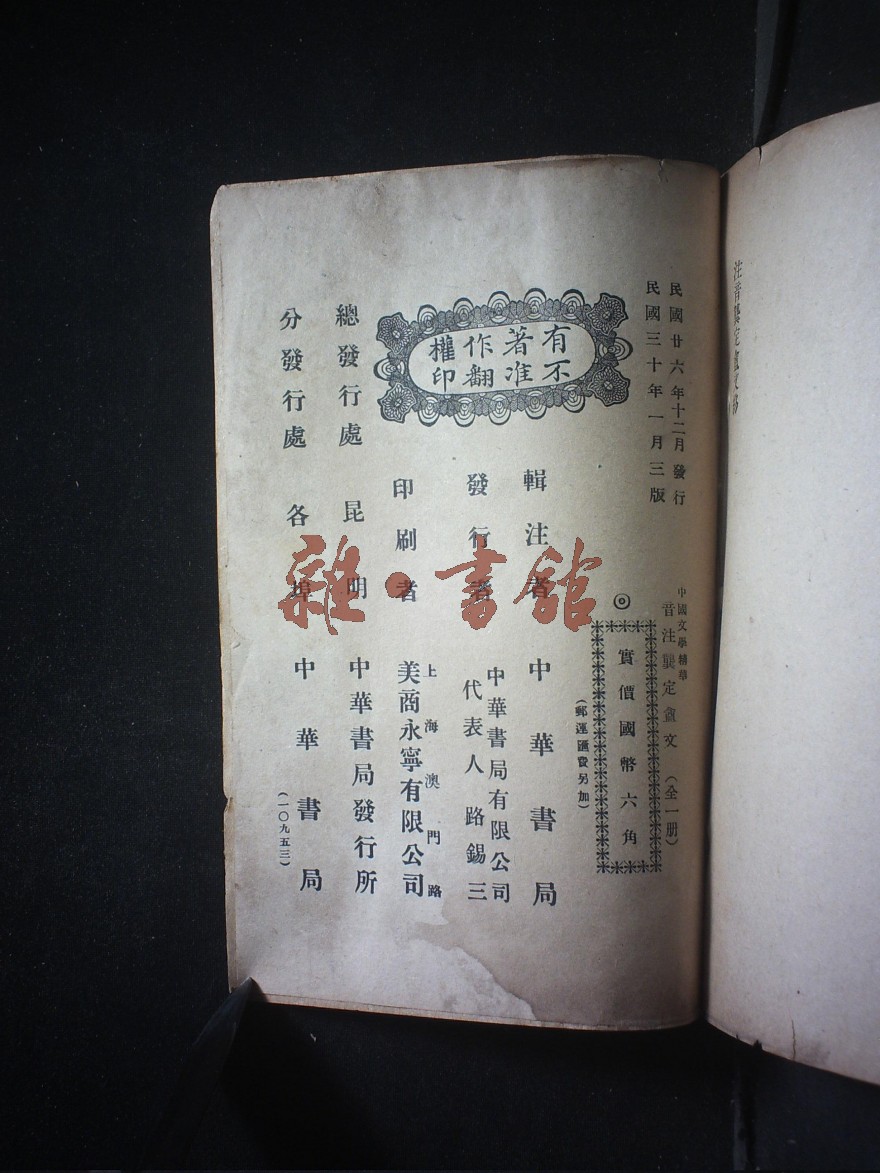 民國廿六年十二月發行
民國三十年一月三版
中國文學精華
音注龔定盦文（全一册）
◎
實價國幣六角
（郵運匯費另加）
有著作權
不准翻印
輯注者 中華書局
發行者 中華書局有限公司
代表人路錫三
印刷者 上海澳門路
美商永寧有限公司
總發行處 昆明 中華書局發行所
分發行處 各埠 中華書局
（一〇九五三）
雜·書館